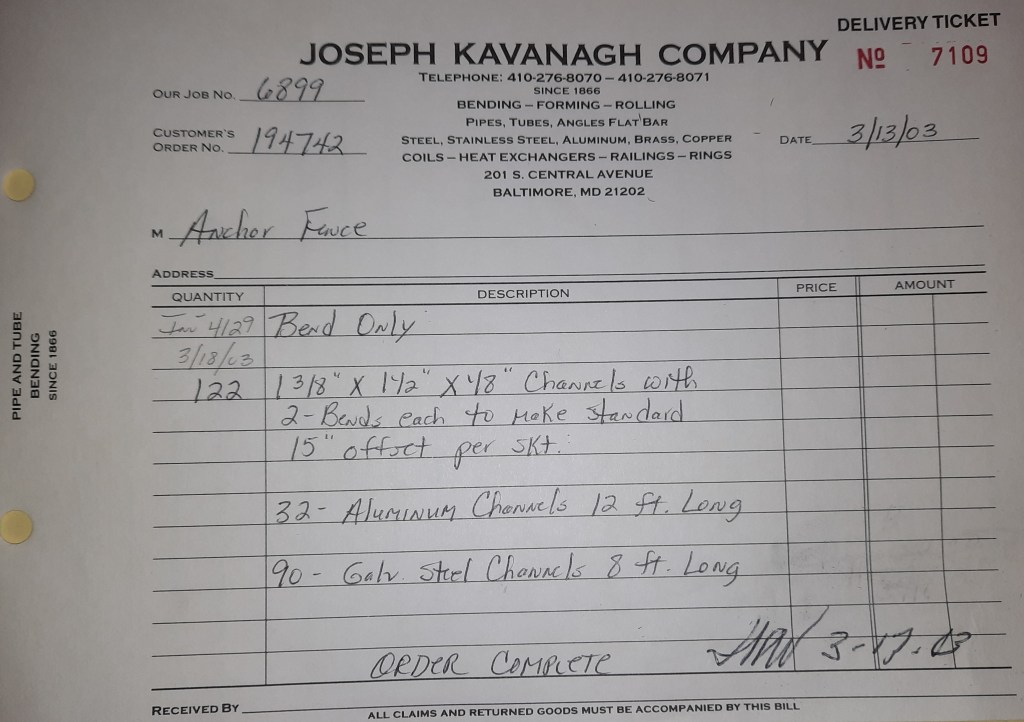 DELIVERY TICKET
JOSEPH KAVANAGH COMPANY
Nº 7109
TELEPHONE: 410-276-8070 – 410-276-8071
SINCE 1866
OUR JOB NO. 6899
BENDING – FORMING – ROLLING
PIPES, TUBES, ANGLES FLAT BAR
CUSTOMER'S
ORDER NO. 194742
STEEL, STAINLESS STEEL, ALUMINUM, BRASS, COPPER
DATE 3/13/03
COILS – HEAT EXCHANGERS – RAILINGS – RINGS
201 S. CENTRAL AVENUE
BALTIMORE, MD 21202
M Anchor Fence
ADDRESS
QUANTITY DESCRIPTION PRICE AMOUNT
4129 Bend Only
3/18/03
122 1 3/8" X 1 1/2" X 1/8" Channels with
2 - Bends each to make standard
15" offset per skt.
32 - Aluminum Channels 12 ft. Long
90 - Galv. Steel Channels 8 ft. Long
ORDER COMPLETE 3-17-03
RECEIVED BY
ALL CLAIMS AND RETURNED GOODS MUST BE ACCOMPANIED BY THIS BILL
PIPE AND TUBE
BENDING
SINCE 1866